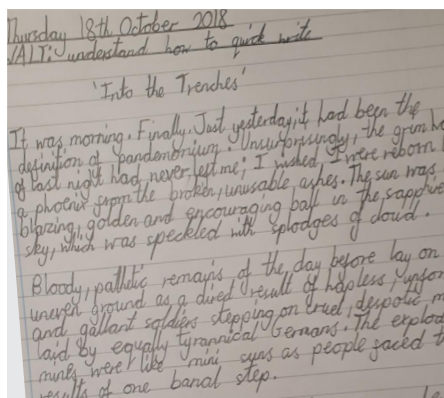 Thursday 18th October 2018
WALT: understand how to quick write
'Into the Trenches'
It was morning. Finally. Just yesterday, it had been the
definition of pandemonium. Unsurprisingly, the grim
of last night had never left me; I wished I were reborn
a phoenix from the broken, unusable ashes. The sun was
blazing, golden and encouraging ball in the sapphire
sky, which was speckled with splodges of cloud.
Bloody, pathetic remains of the day before lay on
uneven ground as a direct result of hapless,
and gallant soldiers stepping on cruel, despotic
laid by equally tyrannical Germans. The
mines were like mini suns as people faced
results of one banal step.